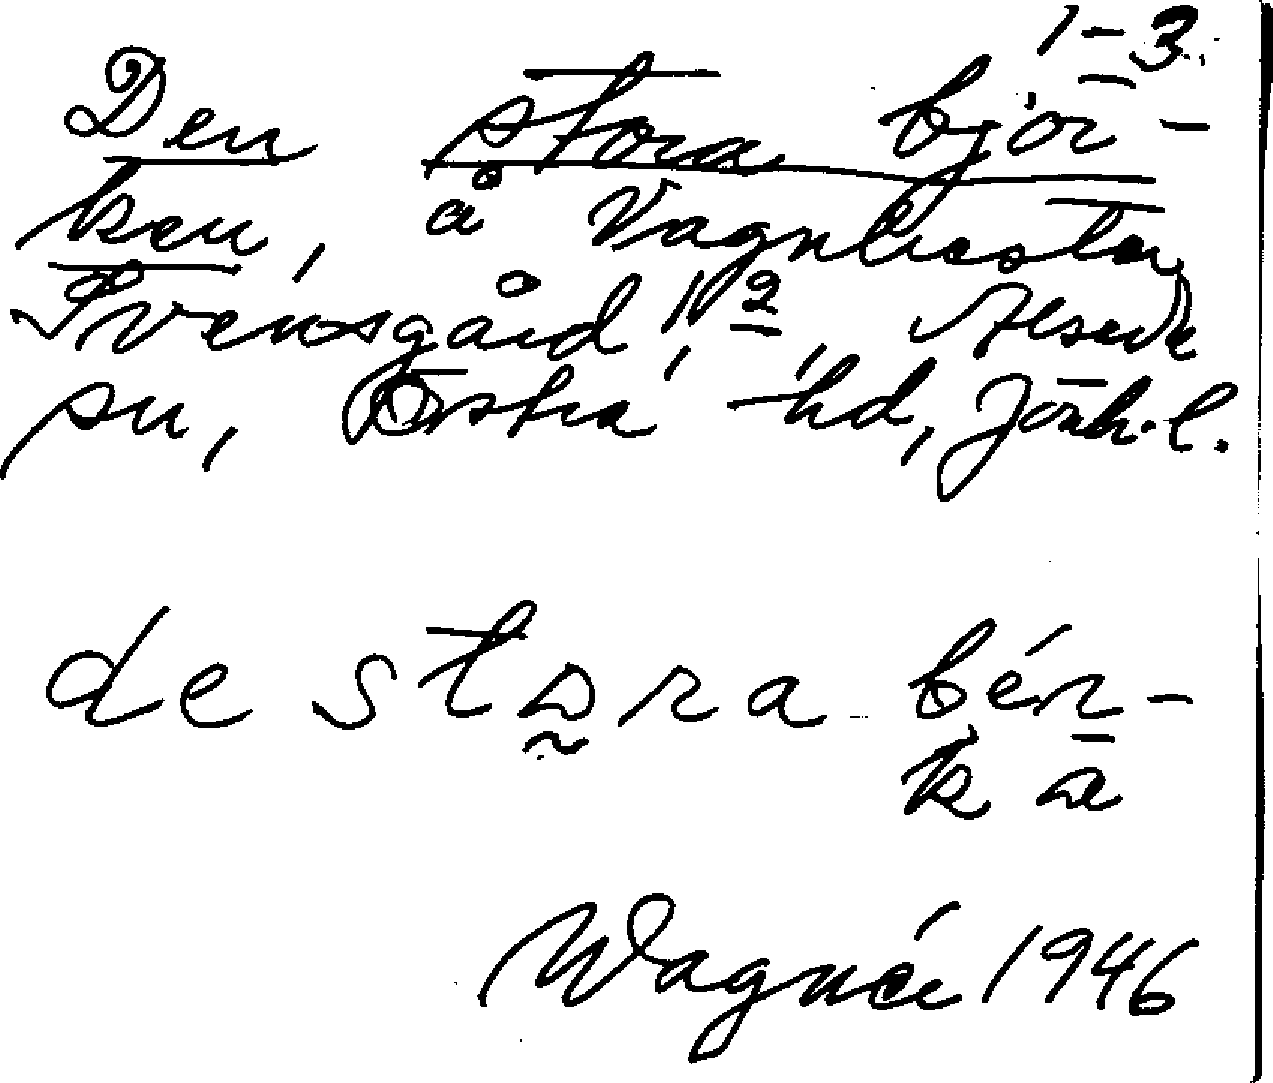 1-3
Den stora björ-
ken, å Vagnhester
Svensgård 1/2, Alseda
sn, Östra hd, Jönk.l.
de stɷra bér-
ka
Wagnér 1946